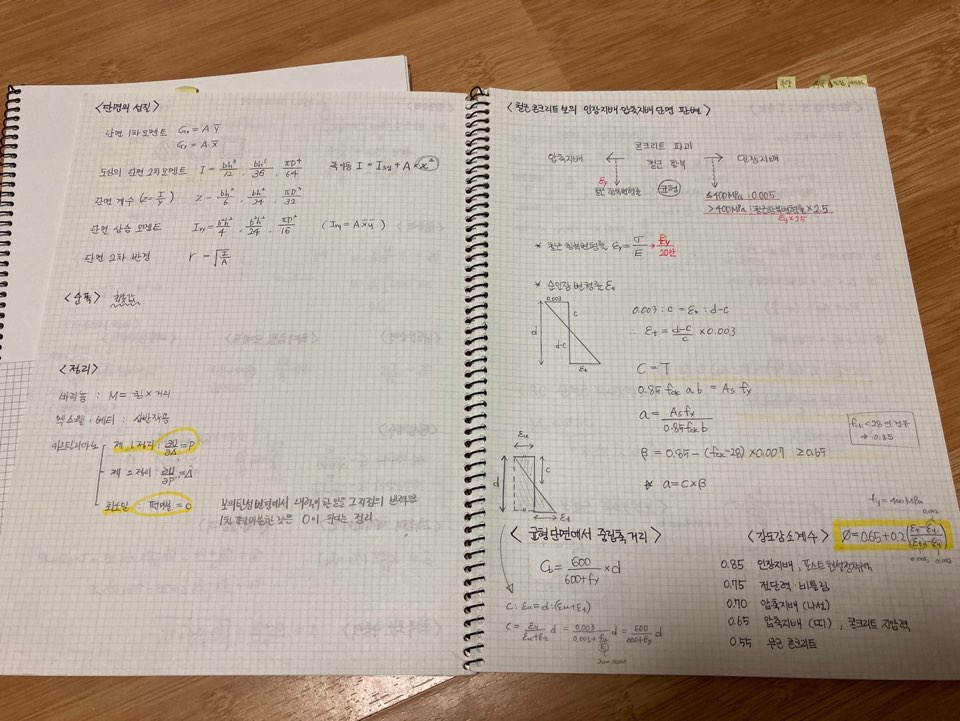 <단면의 성질>
단면 1차모멘트 Gx = A ȳ
Gy = A x̄
도심의 단면 2차모멘트 I = bh³/12, bh³/36, πD⁴/64 축이동 I = A
단면 계수 (Z = I/y) Z = bh²/6, bh²/24, πD³/32
단면 상승 모멘트 Ixy = b²h²/4, b²h²/24, /16 (Ixy = A x̄ ȳ)
단면 2차 반경 r = √(I/A)
<순폭>
<정리>
바리뇽 : M = 힘 × 거리
베티 : 상반작용
제 1정리 : ∂U/∂Δ = P
제 2정리 : ∂U/∂P = Δ
최소일 : 편미분 = 0
1차 편미분한 것은 0이 된다는 정리
<철근콘크리트 보의 인장지배 압축지배 단면 판별>
콘크리트 파괴
압축지배 ← 철근 항복 → 인장지배
εy
철근 항복변형률 균형
≤400MPa : 0.005
>400MPa : 철근항복변형률 × 2.5
εy × 2.5
* 철근 항복변형률 εy = σ/E → fy/20만
* 순인장 변형률 εt
0.003
c
d
d-c
εt
0.003 : c = εt : d-c
∴ εt = (d-c)/c × 0.003
C = T
0.85 fck a b = As fy
a = As fy / 0.85 fck b
fck < 28 인 경우
→ 0.85
β = 0.85 - (fck-28) × 0.007 ≥ 0.65
* a = c × β
εu
d
c
εt
<균형단면에서 중립축거리>
Cb = 600/(600+fy) × d
c : εu = d : (εu+εt)
c = εu/(εu+εt) d = 0.003/(0.003+fy/E) d = 600/(600+fy) d
200,000
fy = 400MPa
0.002
<강도감소계수> Ø = 0.65 + 0.2 (εt-εy / εtd-εy)
0.005, 0.002
0.85 인장지배, 포스트텐션정착구역
0.75 전단력·비틀림
0.70 압축지배 (나선)
0.65 압축지배 (띠), 콘크리트 지압력
0.55 무근 콘크리트